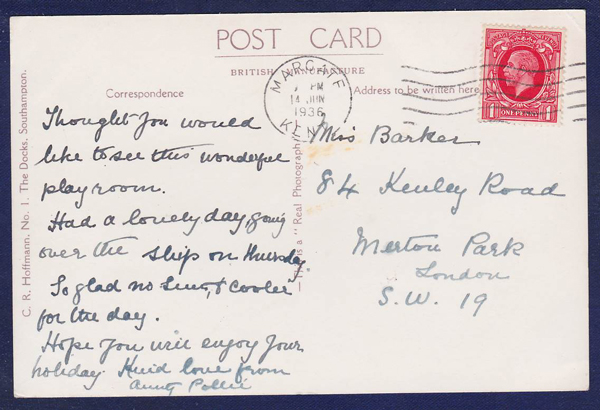 POST CARD
BRITISH MANUFACTURE
Correspondence
Address to be written here
MARGATE
PM
14 JUN
1936
KENT
ONE PENNY
C. R. Hoffmann, No. 1. The Docks, Southampton.
is a "Real Photograph
Thought you would
like to see this wonderful
playroom.
Had a lovely day going
over the ship on Thursday
So glad no Sun, & cooler
for the day.
Hope you will enjoy your
holiday. Kind love from
Aunty Pollie
Mrs Barker
84 Kenley Road
Merton Park
London
S.W. 19